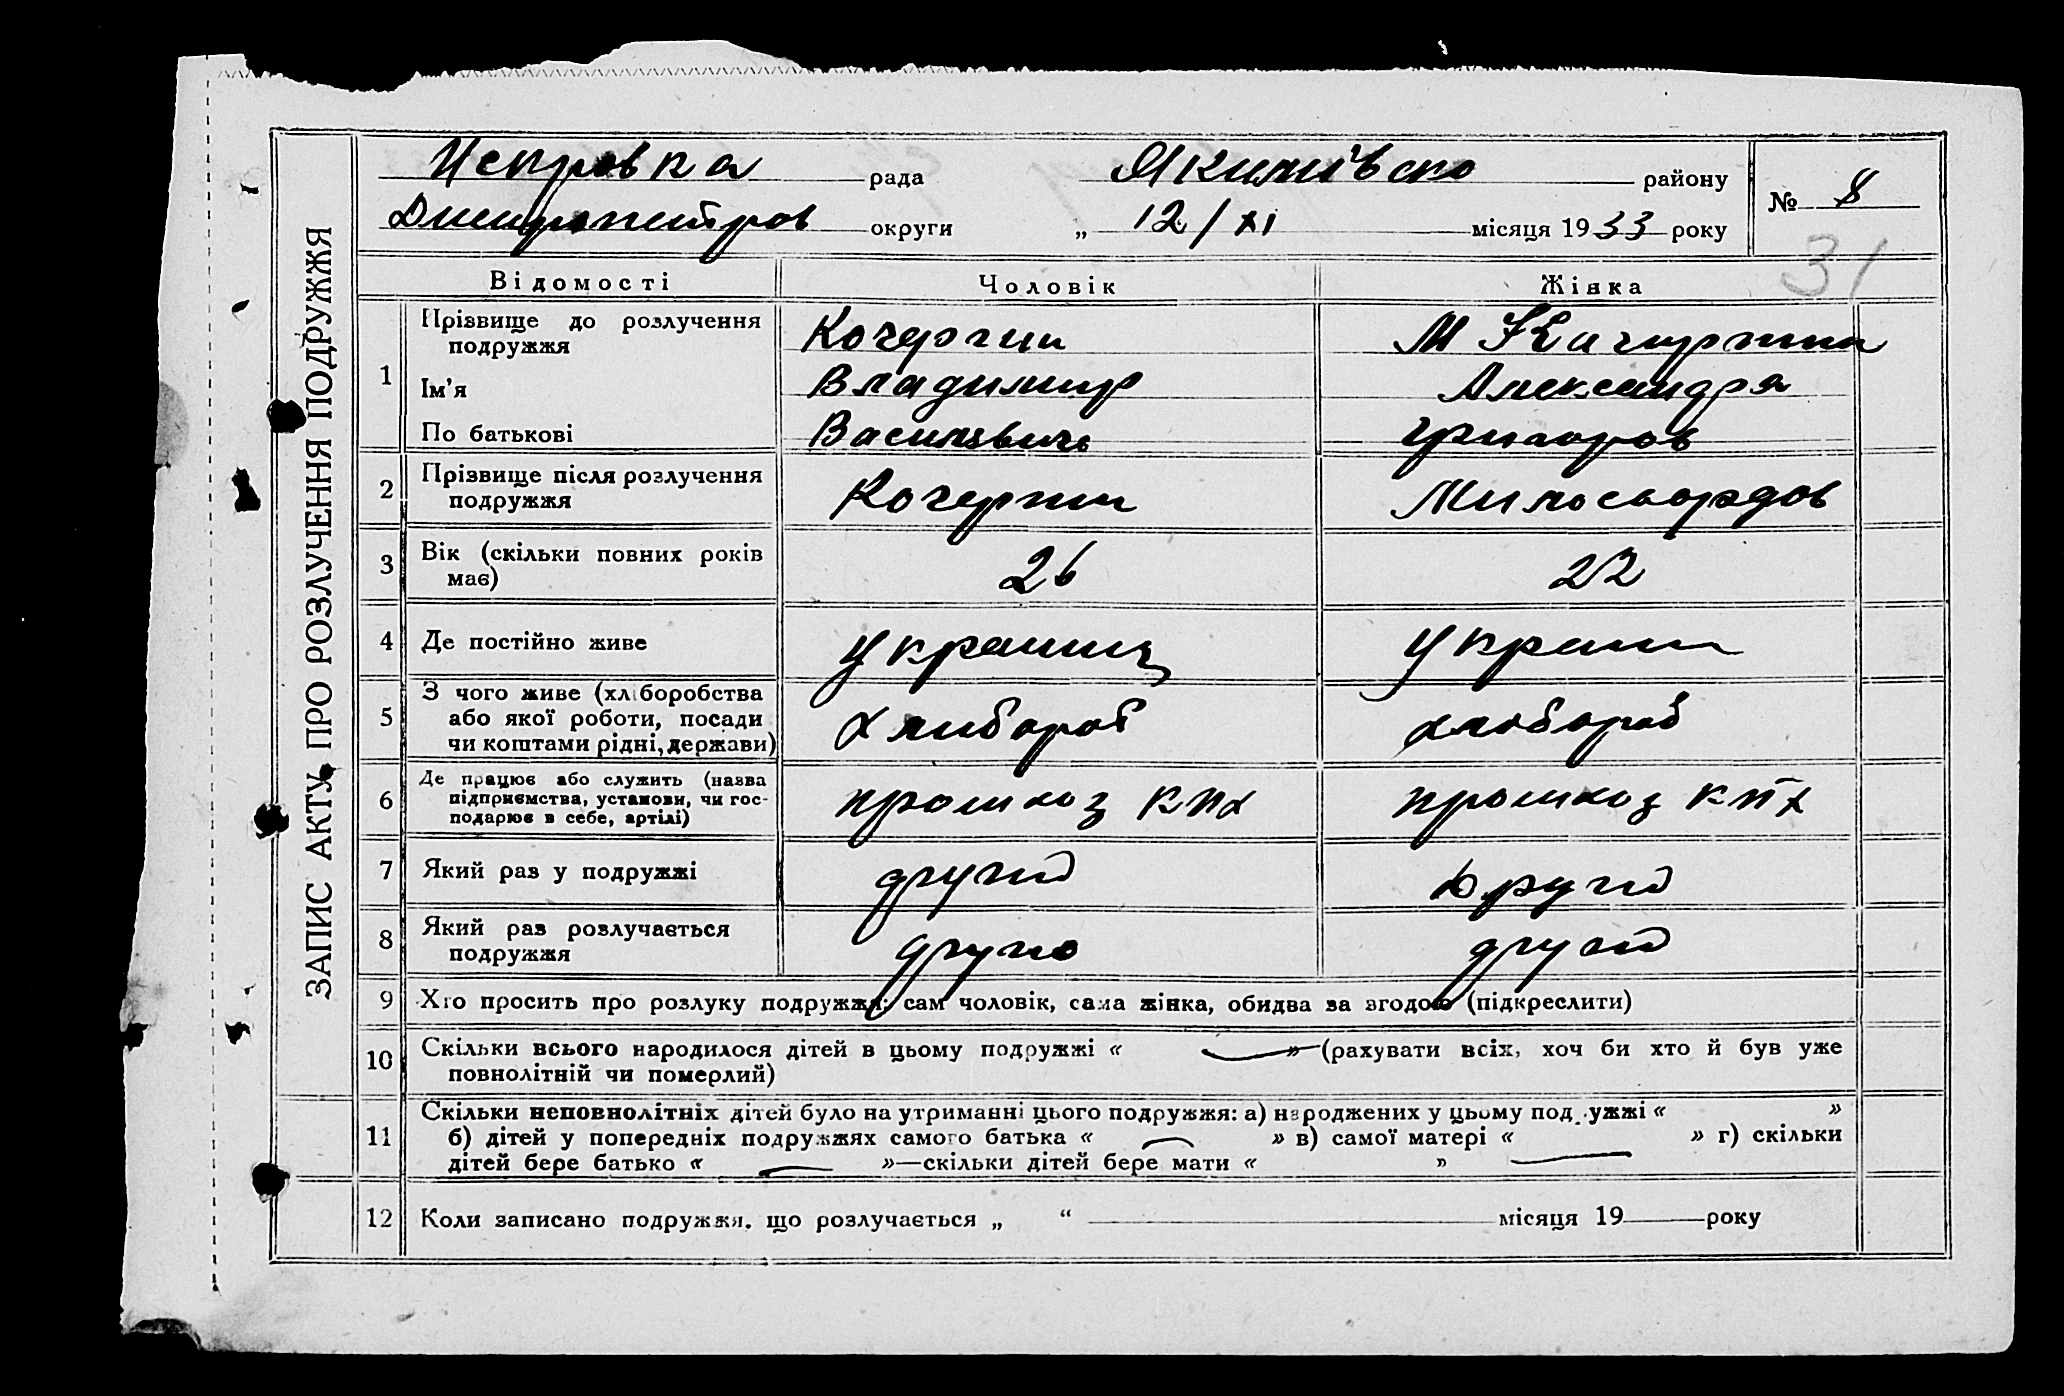 ЗАПИС АКТУ ПРО РОЗЛУЧЕННЯ ПОДРУЖЖЯ
рада Якимівско району № 8
Днепропетров округи „ 12/XI місяця 1933 року
31
Відомості Чоловік Жінка
1 Прізвище до розлучення Кочергин
подружжя
Ім’я Владимир Александра
По батькові Григоров
2 Прізвище після розлучення Кочергин Милосьордов
подружжя
3 Вік (скільки повних років 26 22
має)
4 Де постійно живе
5 З чого живе (хліборобства
або якої роботи, посади хлибороб хлобороб
чи коштами рідні, держави)
6 Де працює або служить (назва
підприємства, установи, чи гос-
подарює в себе, артілі)
7 Який раз у подружжі другий другий
8 Який раз розлучається другий
подружжя
9 Хто просить про розлуку подружжя: сам чоловік, сама жінка, обидва за згодою (підкреслити)
10 Скільки всього народилося дітей в цьому подружжі « — » (рахувати всіх, хоч би хто й був уже
повнолітній чи померлий)
11 Скільки неповнолітніх дітей було на утриманні цього подружжя: а) народжених у цьому подружжі « »
б) дітей у попередніх подружжях самого батька « — » в) самої матері « » г) скільки
дітей бере батько « — »—скільки дітей бере мати « » —
12 Коли записано подружжя, що розлучається „ “ місяця 19 року